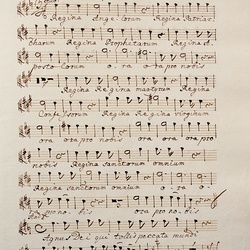 Regina Angelorum Regina Patriar:
charum Regina Prophetarum Regina A:
postolorum o: ra o: ra pro nobis
Regina Regina martyrum Regina
Confessorum Regina Regina virginum
ora pro nobis ora ora pro ora pro
nobis Regina Sanctorum omnium
Regina Sanctorum omnium o: ra o:
pro no: bis ora pro nobis
Agnus Dei qui tollis peccata mundi